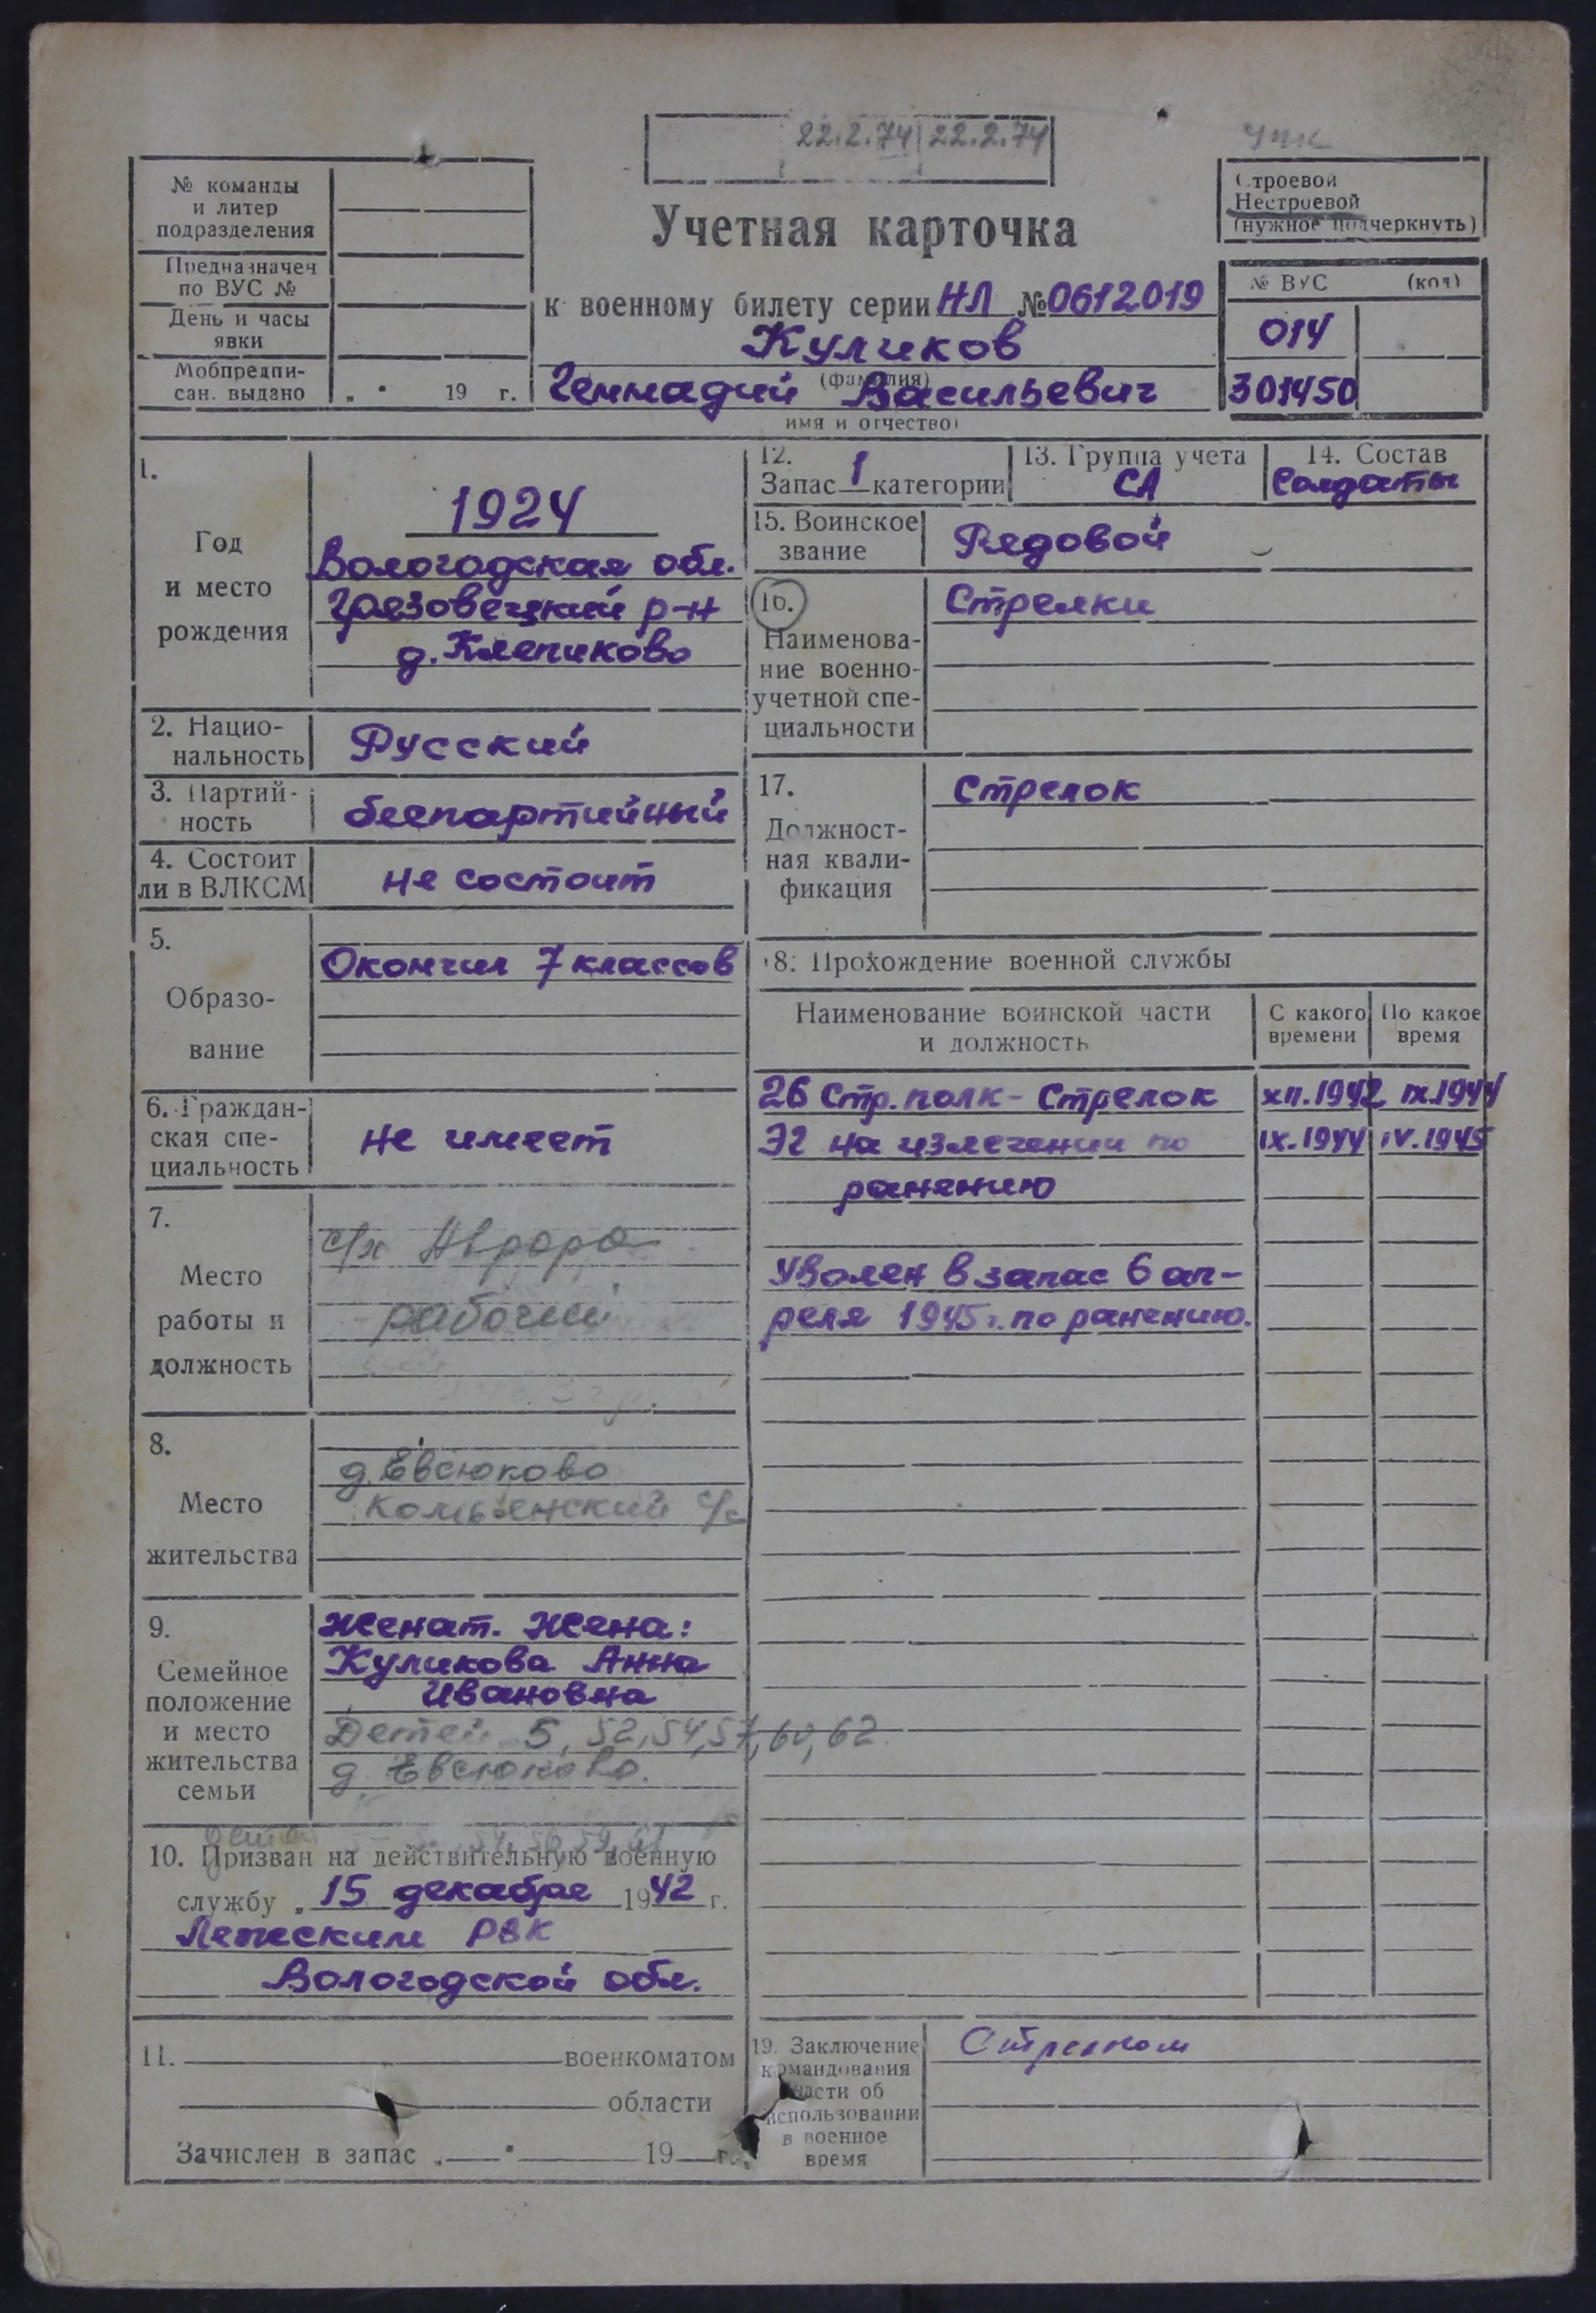 22.2.74 22.2.74
УПК
№ команды
и литер
подразделения
Предназначен
по ВУС №
День и часы
явки
Мобпредпи-
сан. выдано „ " 19 г.
Учетная карточка
к военному билету серии НЛ № 0612019
Куликов
(фамилия)
Геннадий Васильевич
имя и отчество)
Строевой
Нестроевой
(нужное подчеркнуть)
№ ВУС (код)
014
301450
1.
Год
и место
рождения
1924
Вологодская обл.
Грязовецкий р-н
д. Клепиково
2. Нацио-
нальность
Русский
3. Партий-
ность
беспартийный
4. Состоит
ли в ВЛКСМ
не состоит
5.
Образо-
вание
Окончил 7 классов
6. Граждан-
ская спе-
циальность
не имеет
7.
Место
работы и
должность
с/х Аврора
рабочий
8.
Место
жительства
д. Евсюково
Комьянский с/с
9.
Семейное
положение
и место
жительства
семьи
Женат. Жена:
Куликова Анна
Ивановна
Детей 5, 52, 54, 57, 60, 62
д. Евсюково.
10. Призван на действительную военную
службу „ 15 декабря 1942 г.
Лежским РВК
Вологодской обл.
11. военкоматом
области
Зачислен в запас „ " 19 г.
12.
Запас 1 категории
13. Группа учета
СА
14. Состав
Солдаты
15. Воинское
звание
Рядовой
16.
Наименова-
ние военно-
учетной спе-
циальности
Стрелки
17.
Должност-
ная квали-
фикация
Стрелок
18. Прохождение военной службы
Наименование воинской части
и должность
С какого
времени
По какое
время
26 Стр. полк - Стрелок XII.1942 IX.1944
ЭГ на излечении по IX.1944 IV.1945
ранению
Уволен в запас 6 ап-
реля 1945 г. по ранению.
19. Заключение
командования
части об
использовании
в военное
время
Стрелком